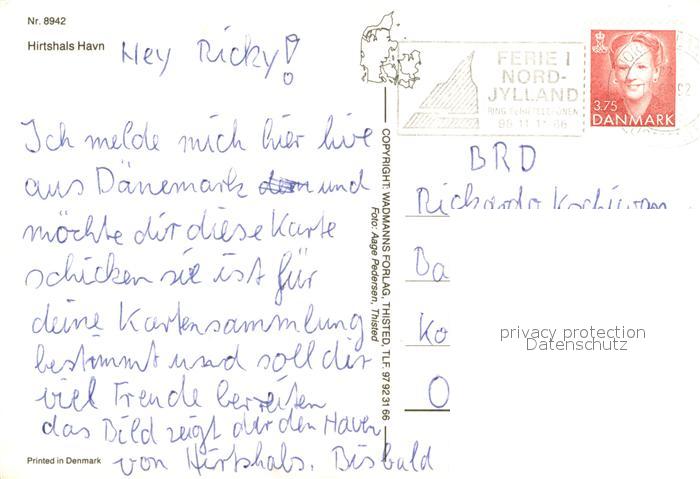 Nr. 8942
Hirtshals Havn
Hey Ricky!
Ich melde mich hier live
aus Dänemark und
möchte dir diese Karte
schicken sie ist für
deine Kartensammlung
bestimmt und soll dir
viel Freude bereiten
das Bild zeigt dir den Haven
von Hirtshals. Bis bald
Printed in Denmark
COPYRIGHT: WADMANNS FORLAG, THISTED, TLF. 97 92 31 66
Foto: Aage Pedersen, Thisted
FERIE I
NORD-
JYLLAND
RING TELEFONEN
98 11 11 66
92
3.75
DANMARK
BRD
Ba
Ko
O
privacy protection
Datenschutz